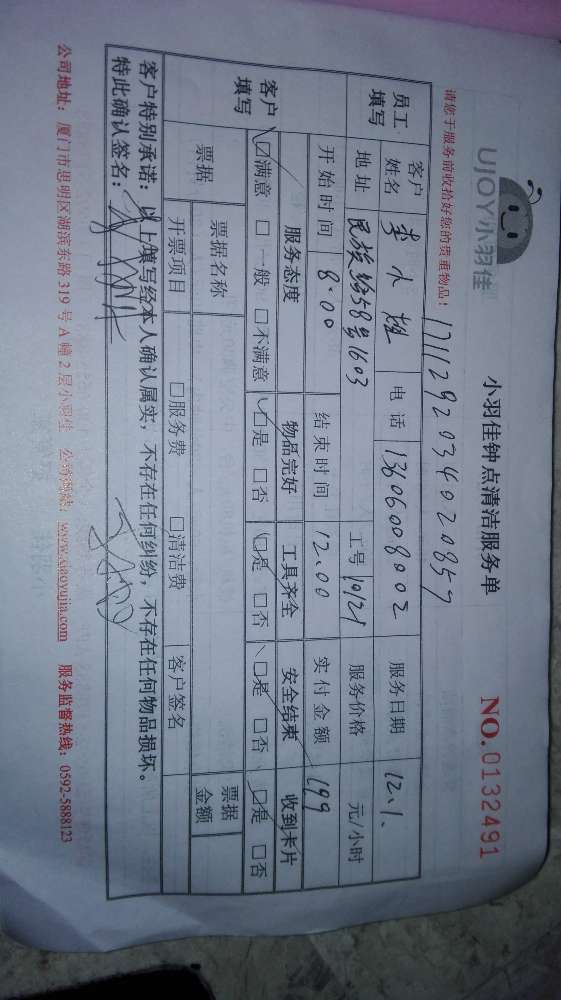 UJOY小羽佳
小羽佳钟点清洁服务单
NO.0132491
请您于服务前收拾好您的贵重物品！
1711292034020857
员工填写
客户姓名 李小姐 电话 13606008002 服务日期 12.1.
地址 民族路58号1603 工号 1012 服务价格 元/小时
开始时间 8:00 结束时间 12:00 实付金额 199
客户填写
服务态度 物品完好 工具齐全 安全结束 收到卡片
☑满意 □一般 □不满意 ☑是 □否 ☑是 □否 ☑是 □否 ☑是 □否
票据 票据名称 票据金额
开票项目 □服务费 □清洁费 客户签名
客户特别承诺：以上填写经本人确认属实，不存在任何纠纷，不存在任何物品损坏。
特此确认签名：
公司地址：厦门市思明区湖滨东路319号A幢2层小羽佳 公司网址：www.xiaoyujia.com 服务监督热线：0592-5888123